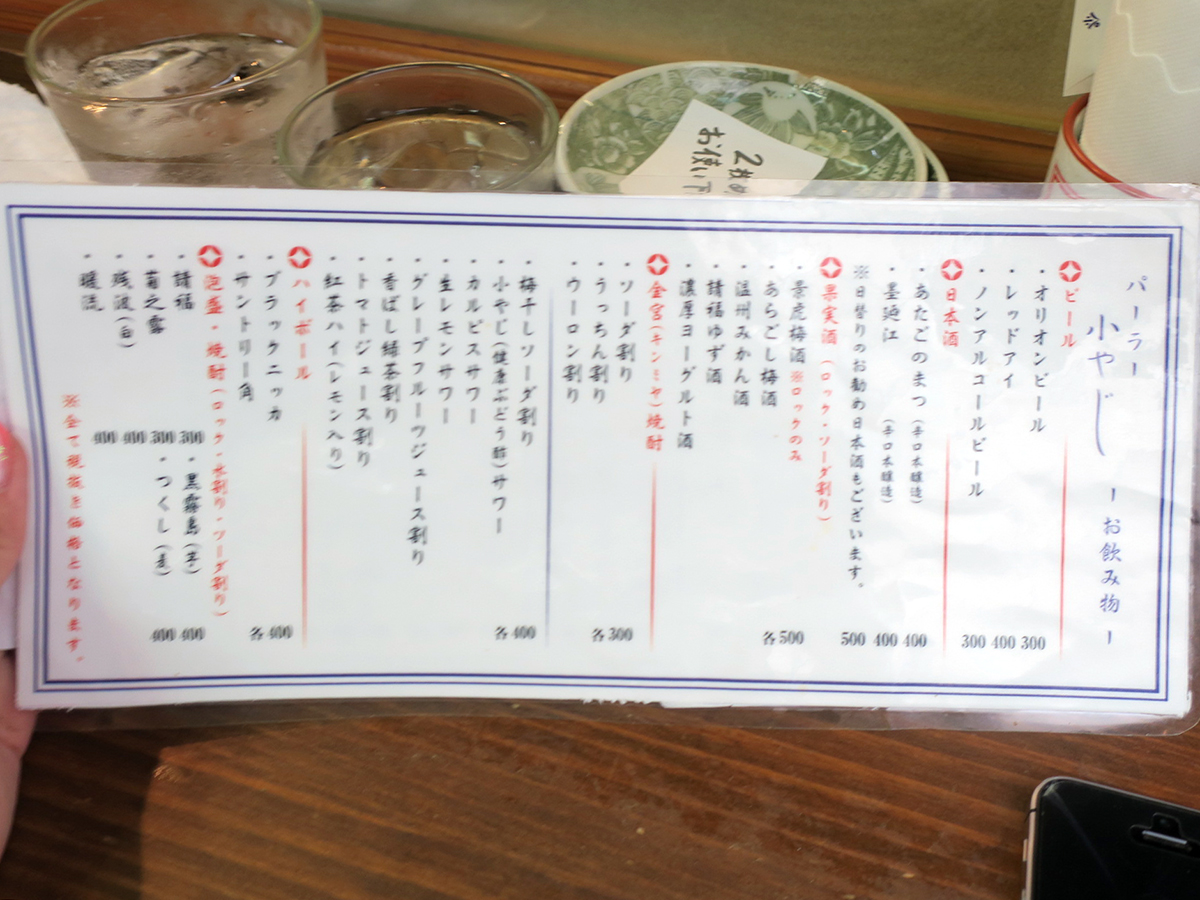 パーラー
小やじ
ー お飲み物 ー
ビール
・オリオンビール 300
・レッドアイ 400
・ノンアルコールビール 300
日本酒
・あたごのまつ (辛口本醸造) 400
・墨廼江 (辛口本醸造) 400
※日替りのお勧め日本酒もございます。 500
果実酒 (ロック・ソーダ割り)
・景虎梅酒 ※ロックのみ
・あらごし梅酒
・温州みかん酒
・請福ゆず酒
・濃厚ヨーグルト酒
各500
金宮(キンミヤ)焼酎
・ソーダ割り
・うっちん割り
・ウーロン割り
各300
・梅干しソーダ割り
・小やじ(健康ぶどう酢)サワー
・カルピスサワー
・生レモンサワー
・グレープフルーツジュース割り
・香ばし緑茶割り
・トマトジュース割り
・紅茶ハイ(レモン入り)
各400
ハイボール
・ブラックニッカ
・サントリー角
各400
泡盛・焼酎(ロック・水割り・ソーダ割り)
・請福 300
・菊之露 300
・残波(白) 400
・暖流 400
・黒霧島(芋) 400
・つくし(麦) 400
※全て税抜き価格となります。
2枚め
お使い下